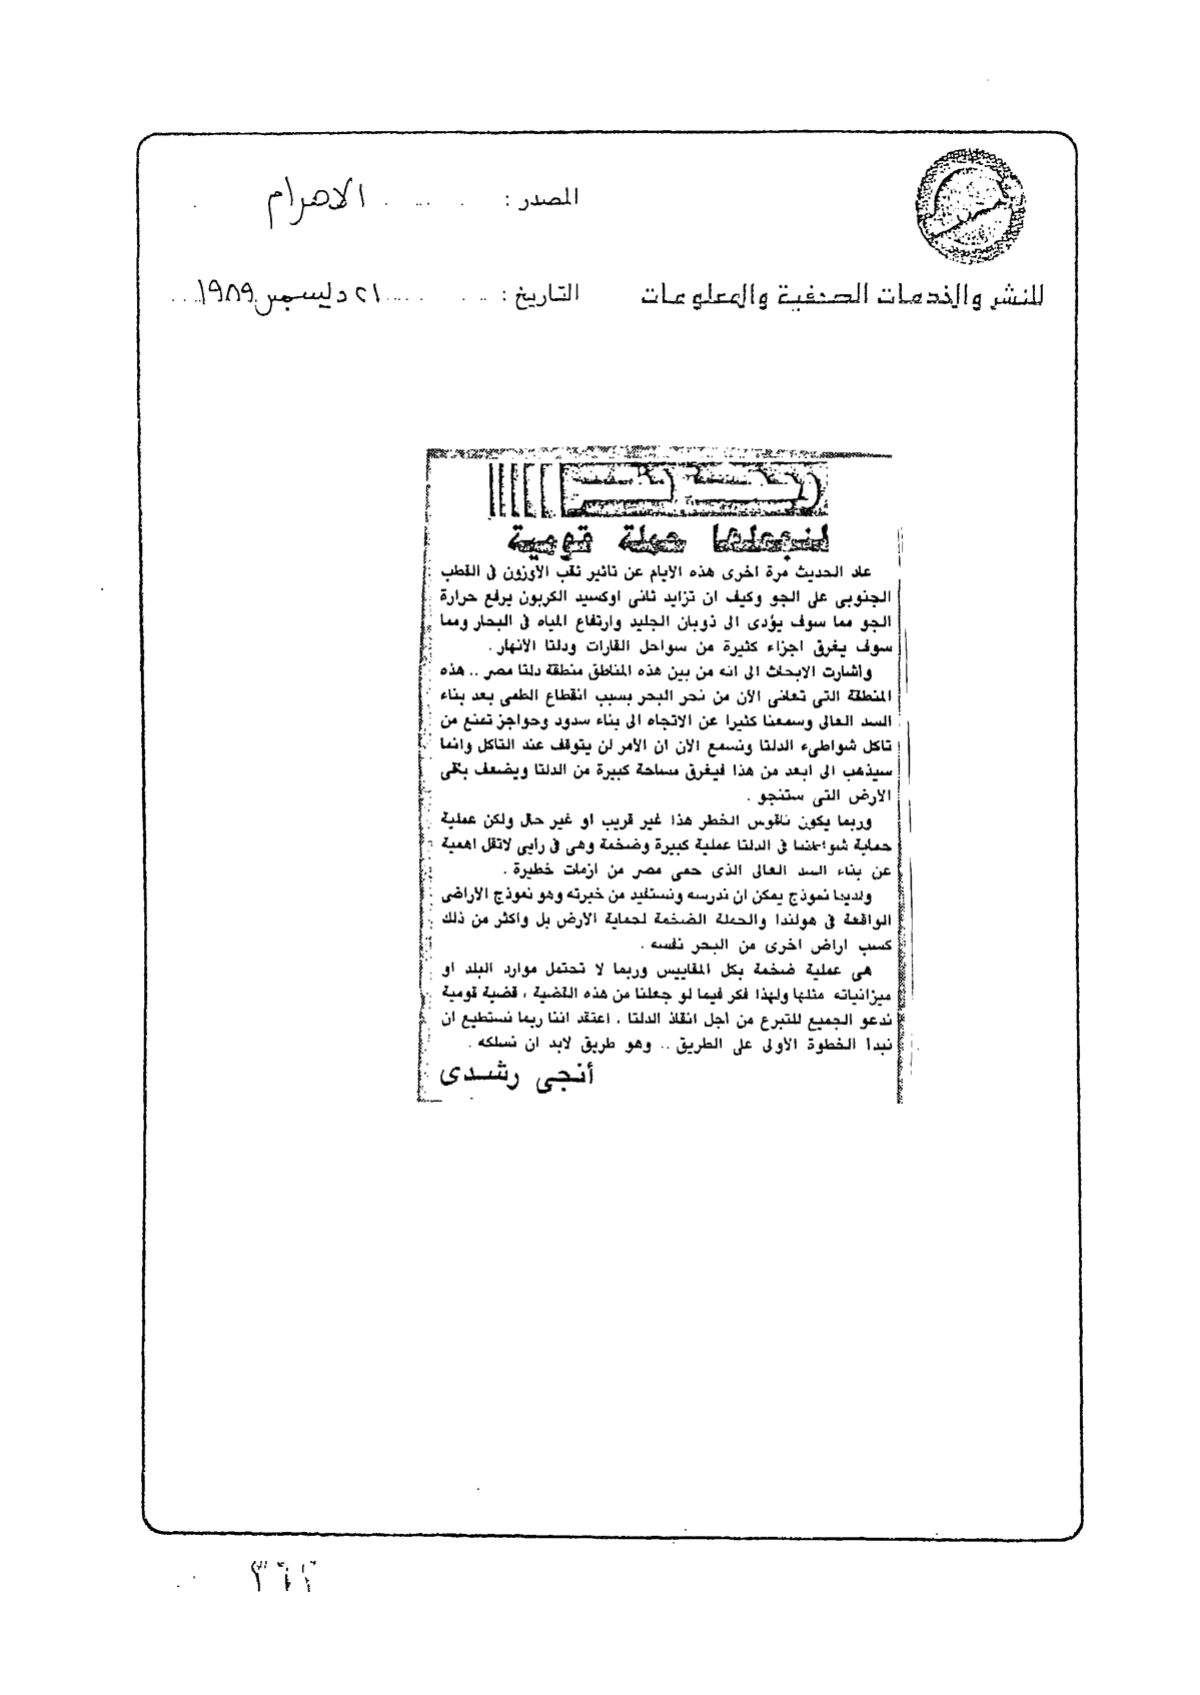 المصدر : الاهرام
للنشر والخدمات الصحفية والمعلومات
التاريخ : ٢١ ديسمبر ١٩٨٩
لنجعلها حملة قومية
عاد الحديث مرة اخرى هذه الايام عن تاثير ثقب الاوزون فى القطب
الجنوبى على الجو وكيف ان تزايد ثانى اوكسيد الكربون يرفع حرارة
الجو مما سوف يؤدى الى ذوبان الجليد وارتفاع المياه فى البحار ومما
سوف يغرق اجزاء كثيرة من سواحل القارات ودلتا الانهار .
واشارت الابحاث الى انه من بين هذه المناطق منطقة دلتا مصر .. هذه
المنطقة التى تعانى الآن من نحر البحر بسبب انقطاع الطمى بعد بناء
السد العالى وسمعنا كثيرا عن الاتجاه الى بناء سدود وحواجز تمنع من
تاكل شواطىء الدلتا ونسمع الآن ان الأمر لن يتوقف عند التاكل وانما
سيذهب الى ابعد من هذا فيغرق مساحة كبيرة من الدلتا ويضعف باقى
الارض التى ستنجو .
وربما يكون ناقوس الخطر هذا غير قريب او غير حال ولكن عملية
حماية شواطئنا فى الدلتا عملية كبيرة وضخمة وهى فى رايى لاتقل اهمية
عن بناء السد العالى الذى حمى مصر من ازمات خطيرة .
ولدينا نموذج يمكن ان ندرسه ونستفيد من خبرته وهو نموذج الاراضى
الواقعة فى هولندا والحملة الضخمة لحماية الارض بل واكثر من ذلك
كسب اراض اخرى من البحر نفسه .
هى عملية ضخمة بكل المقاييس وربما لا تحتمل موارد البلد او
ميزانياته مثلها ولهذا فكر فيما لو جعلنا من هذه القضية ، قضية قومية
ندعو الجميع للتبرع من أجل انقاذ الدلتا . اعتقد اننا ربما نستطيع ان
نبدأ الخطوة الأولى على الطريق .. وهو طريق لابد ان نسلكه .
أنجى رشدى